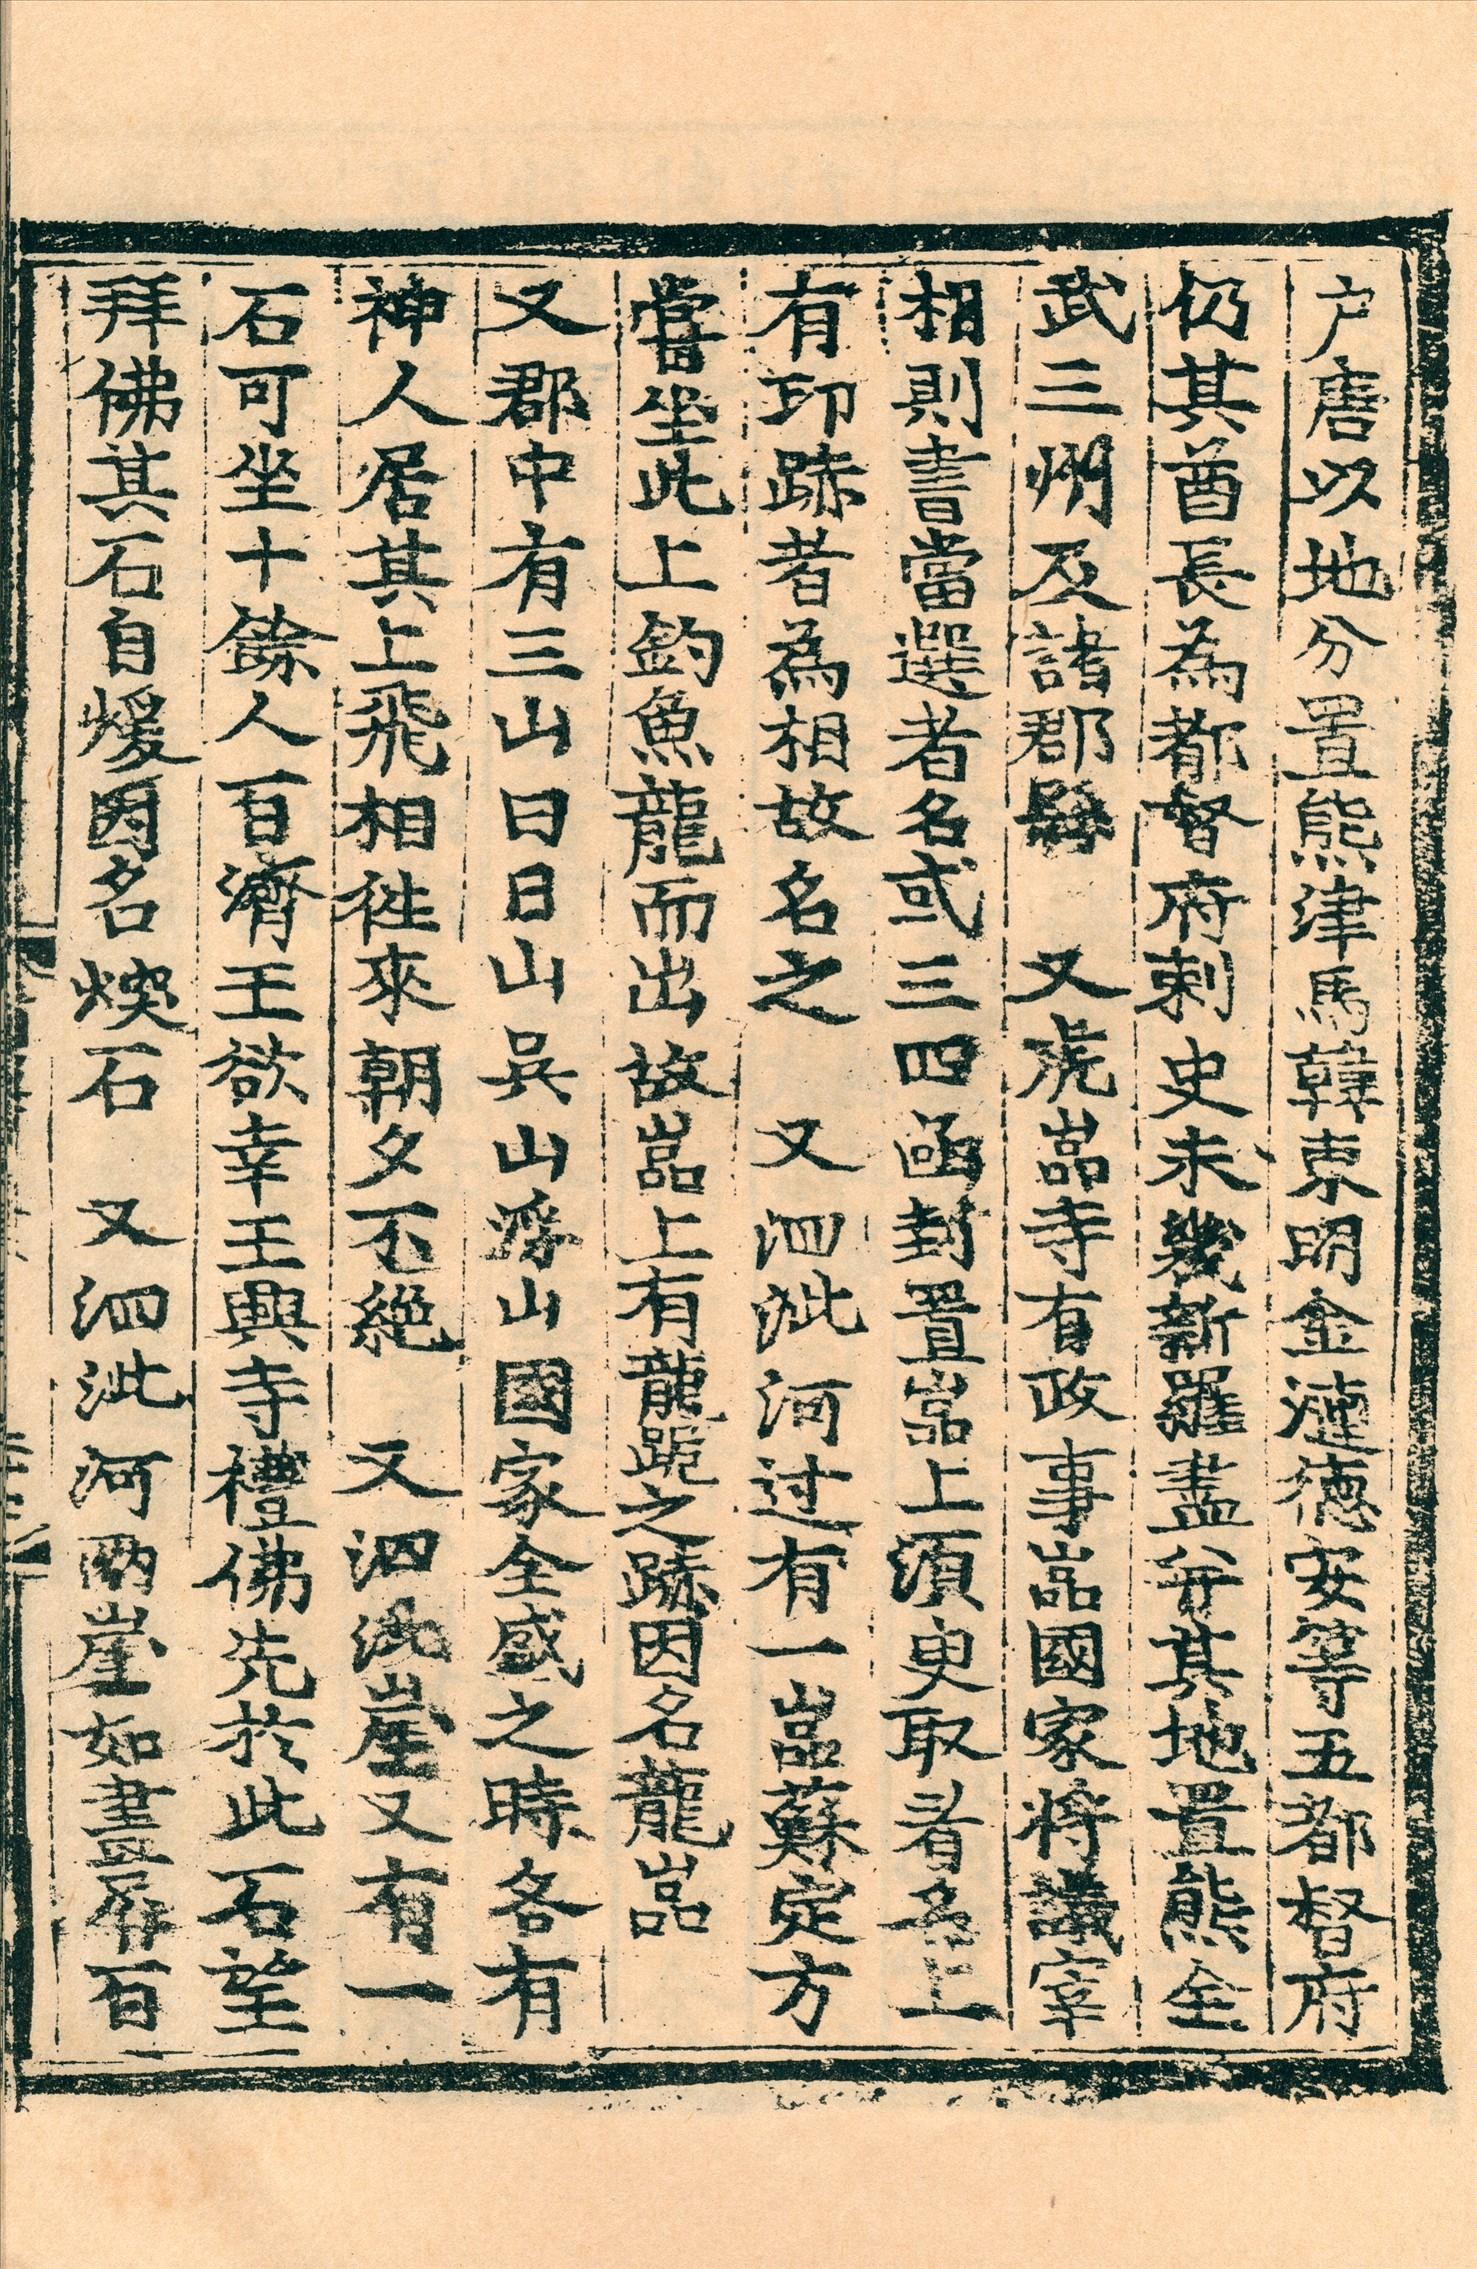 户唐以地分置熊津馬韓東明金漣德安等五都督府
仍其酋長為都督府刺史未幾新羅盡幷其地置熊全
武三州及諸郡縣　又虎嵓寺有政事嵓國家將議宰
相則書當選者名或三四函封置嵓上湏臾取看名上
有印跡者為相故名之　又泗泚河过有一嵓蘇定方
嘗坐此上釣魚龍而出故嵓上有龍跪之跡因名龍嵓
又郡中有三山曰日山吳山浮山國家全盛之時各有
神人居其上飛相徃來朝夕不絶　又泗泚崖又有一
石可坐十餘人百濟王欲幸王興寺禮佛先於此石望
拜佛其石自煖因名㷝石　又泗泚河兩崖如畫屏百